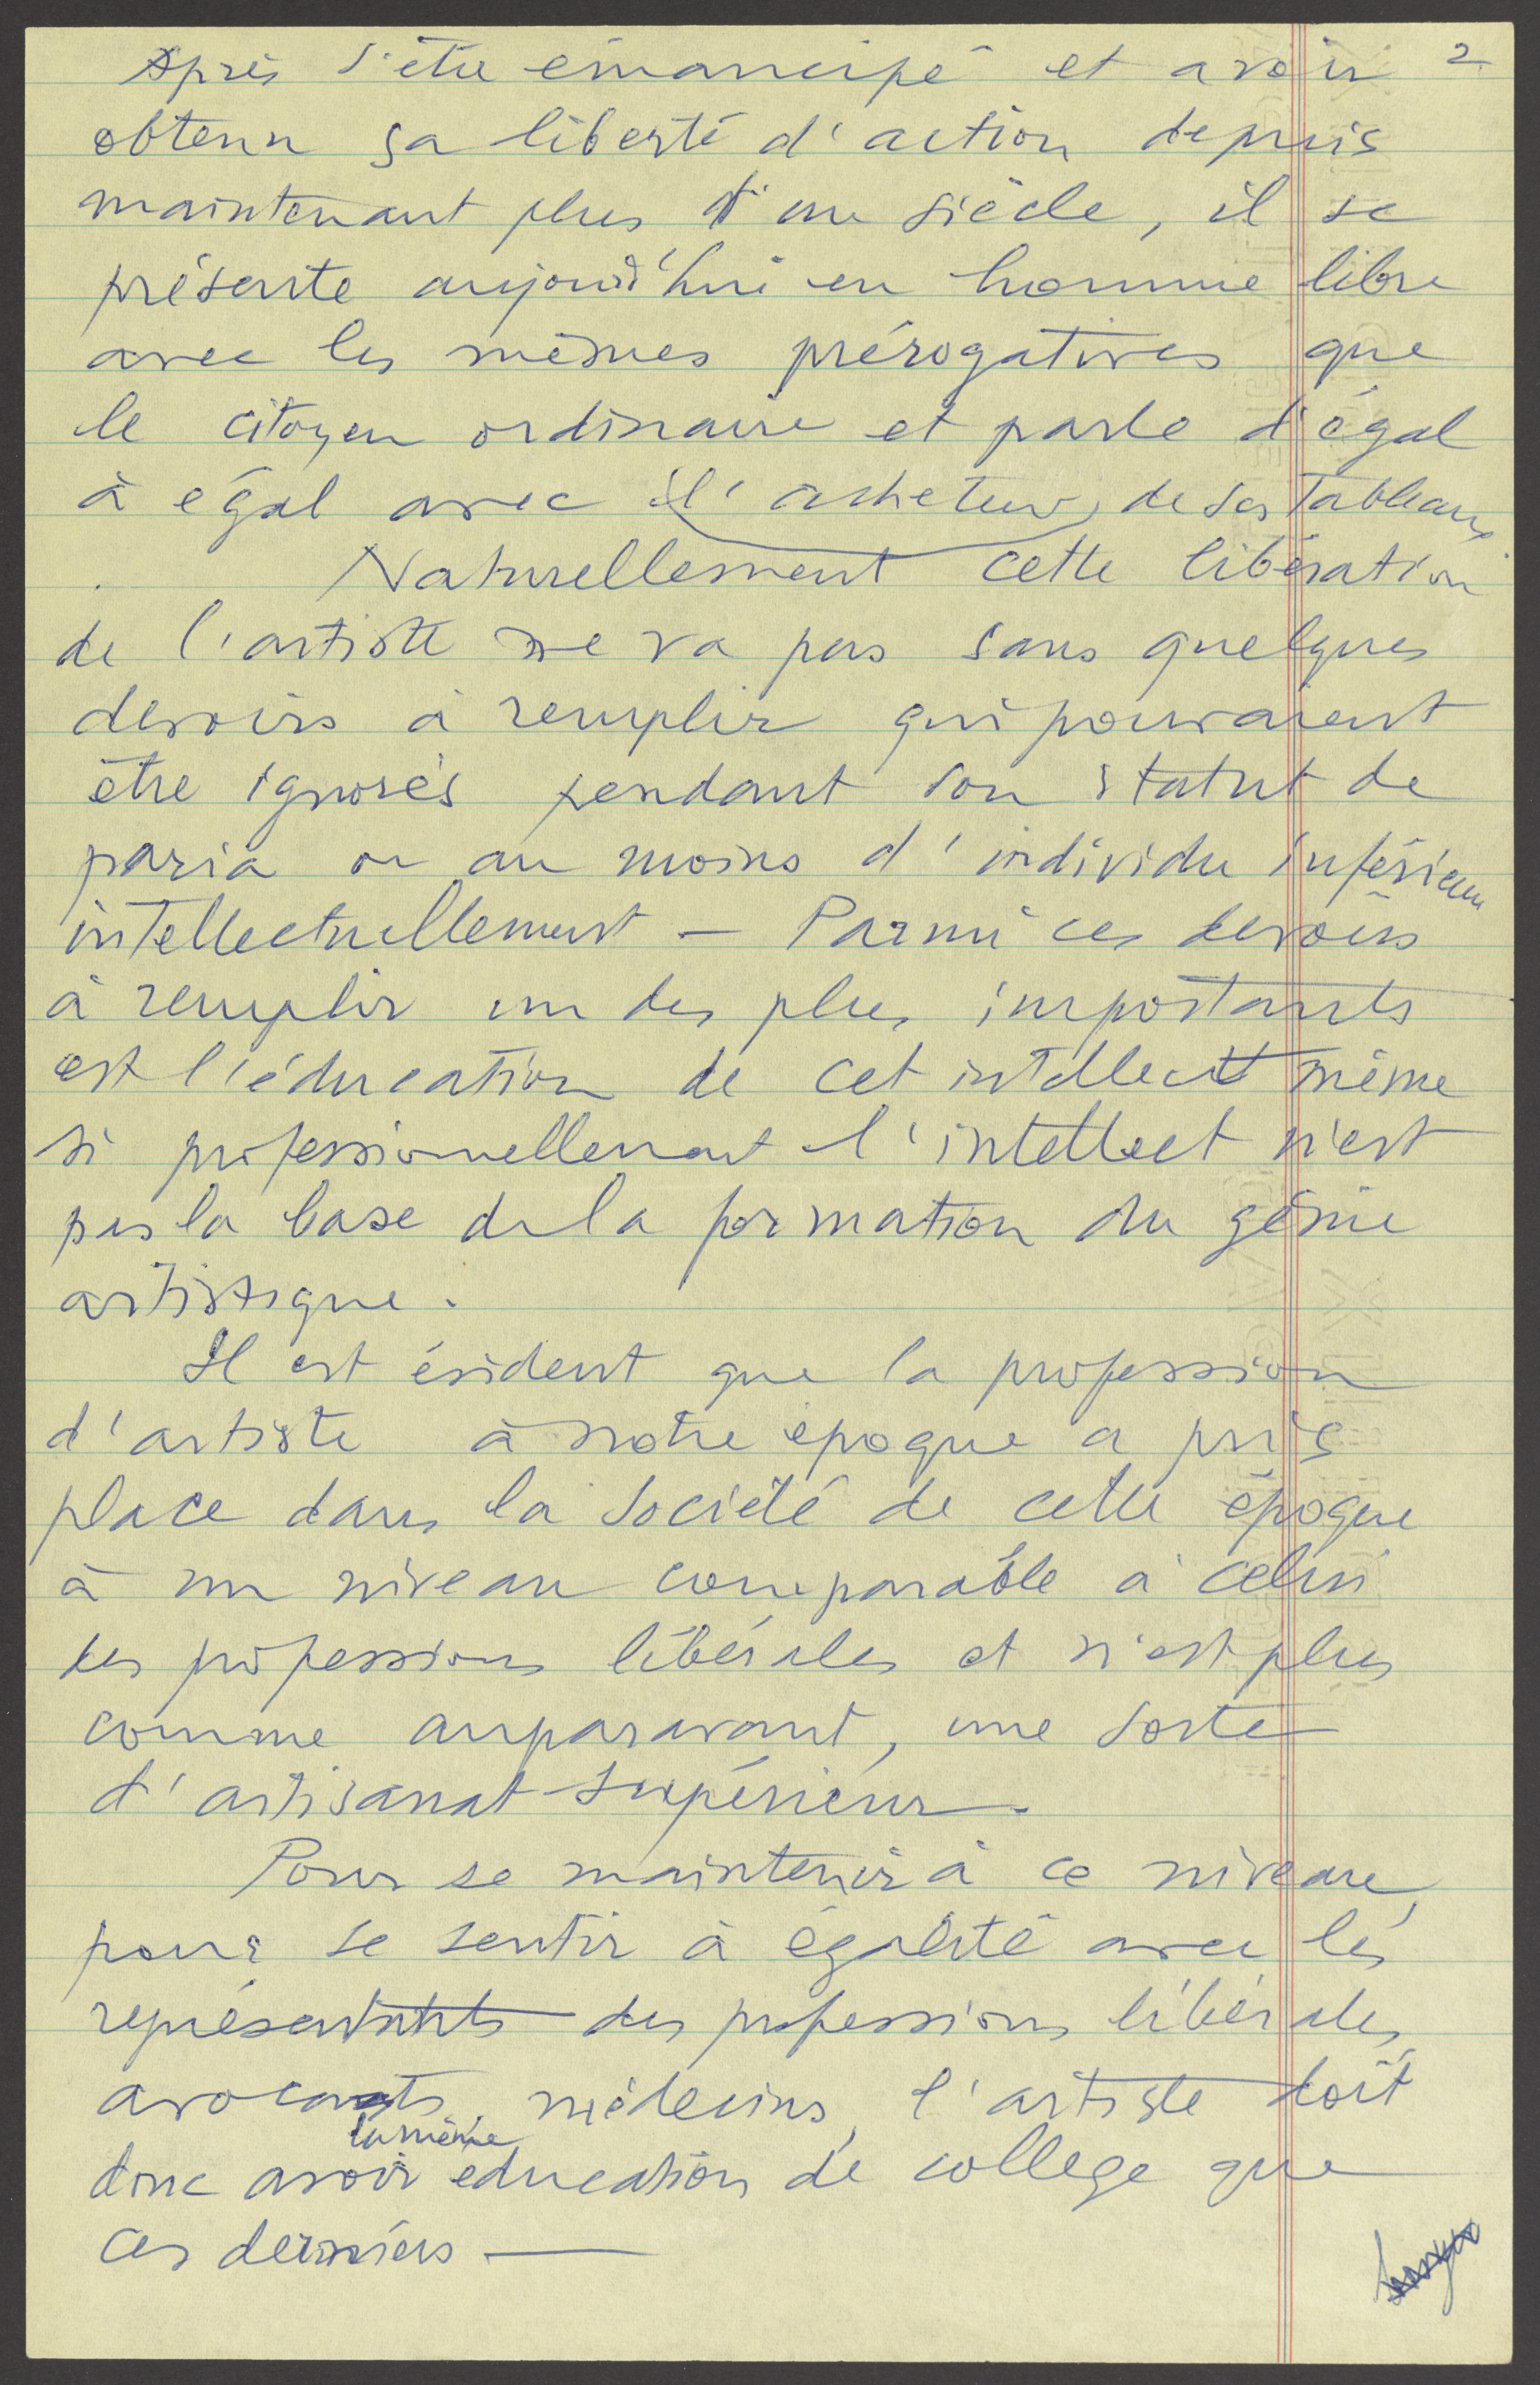 2
Après s'être émancipé et avoir
obtenu sa liberté d'action depuis
maintenant plus d'un siècle, il se
présente aujourd'hui en homme libre
avec les mêmes prérogatives que
le citoyen ordinaire et parle d'égal
à égal avec l'acheteur de ses tableaux
. Naturellement cette libération
de l'artiste ne va pas sans quelques
devoirs à remplir qui pouvaient
être ignorés pendant son statut de
paria ou au moins d'individu inférieur
intellectuellement – Parmi ces devoirs
à remplir un des plus importants
est l'éducation de cet intellect même
si professionnellement l'intellect n'est
pas la base de la formation du génie
artistique.
Il est évident que la profession
d'artiste à notre époque a pris
place dans la société de cette époque
à un niveau comparable à celui
des professions libérales et n'est plus
comme auparavant, une sorte
d'artisanat supérieur.
Pour se maintenir à ce niveau,
pour se sentir à égalité avec les
représentants des professions libérales,
avocats, médecins, l'artiste doit
la même
donc avoir education de college que
ces derniers —